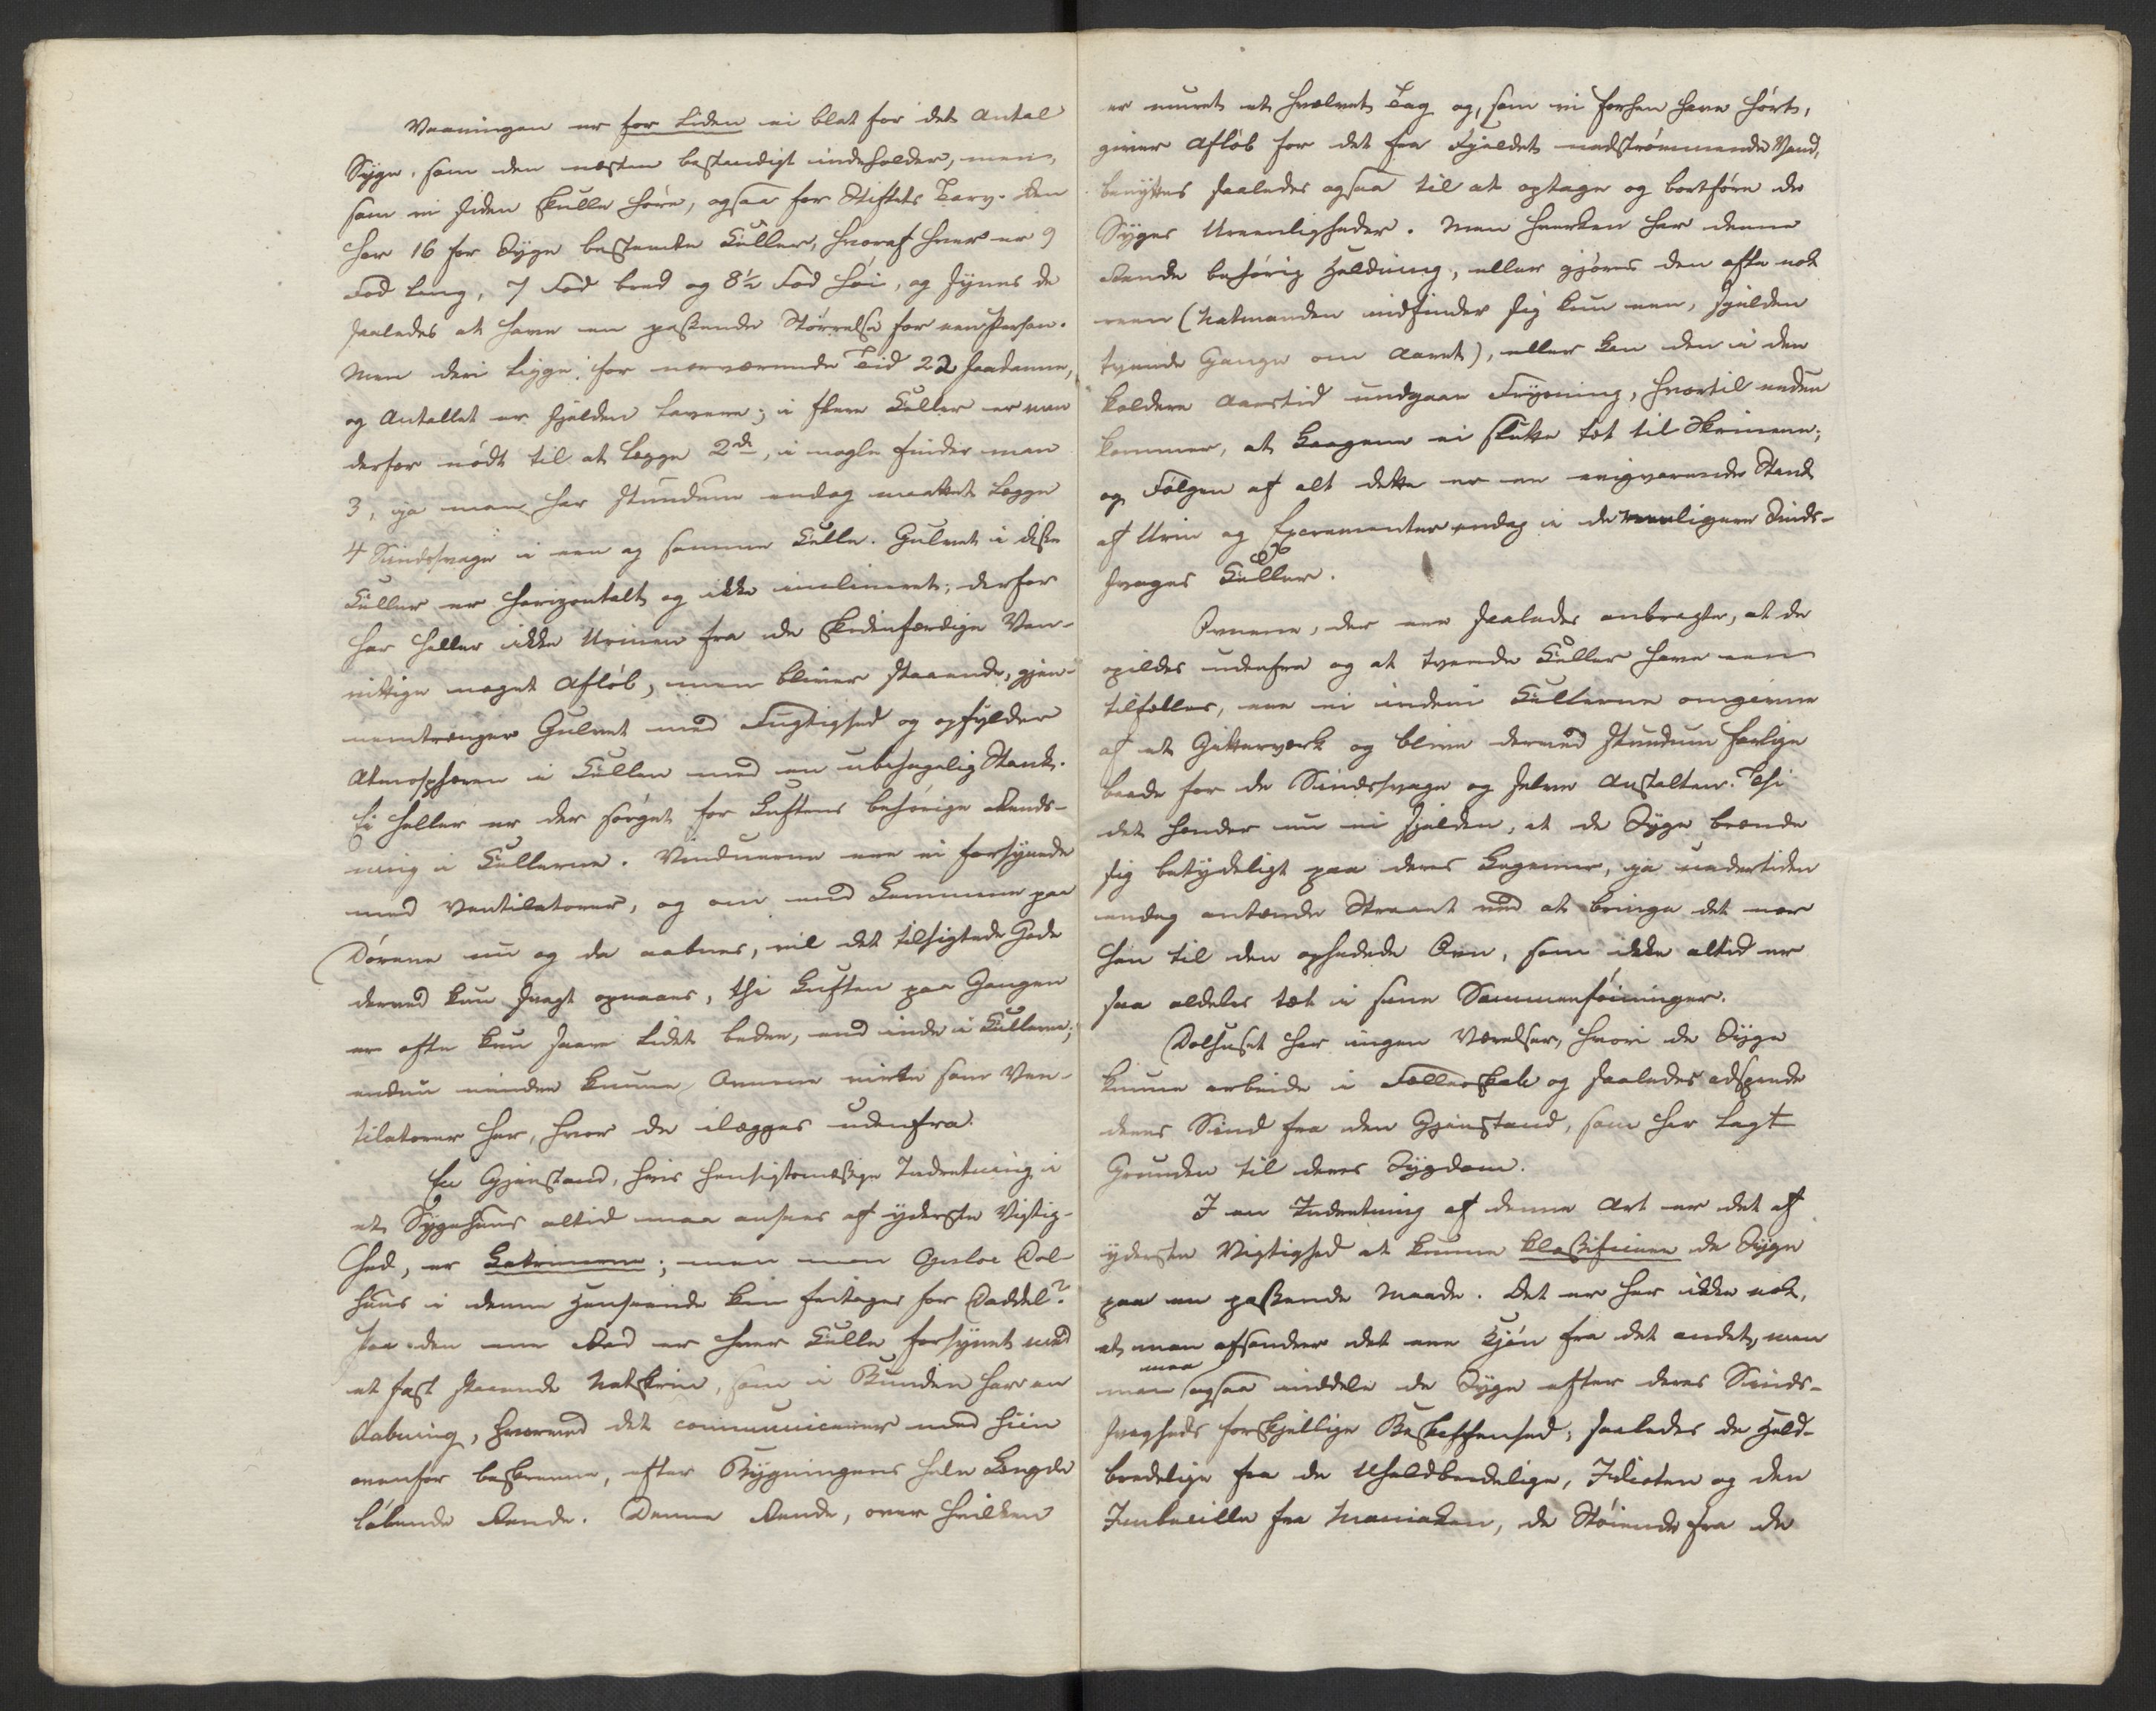 Vaaningen er for liden ei blot for det Antal
Syge, som den næsten bestandigt indeholder, men,
som vi siden skulle høre, ogsaa for Stiftets Tarv. Den
har 16 for Syge bestemte Celler, hvoraf hver er 9
Fod lang, 7 Fod bred og 8½ Fod høi, og synes de
saaledes at have en passende Størrelse for een Person.
Men der ligge for nærværende Tid 22 saadanne,
og Antallet er sjelden lavere; i flere Celler er man
derfor nødt til at lægge 2de, i nogle finder man
3, ja man har stundum endog maattet lægge
4 Sindssvage i een og samme Celle. Gulvet i disse
Celler er horizontalt og ikke inclineret; derfor
har heller ikke Urinen fra de skidenfærdige Van-
vittige noget Afløb, men bliver staaende, gjen-
nemtrænger Gulvet med Fugtighed og opfylder
Atmosphæren i Cellen med en ubehagelig Stank.
Ei heller er der sørget for Luftens behørige Rends-
ning i Cellerne. Vinduerne ere ei forsynede
med Ventilatorer, og om end Lemmene paa
Dørene nu og da aabnes, vil det tilsigtede Gode
derved kun svagt opnaaes, thi Luften paa Gangen
er ofte kun saare lidet bedre, end inde i Cellerne;
endnu mindre kunne Ovnene virke som Ven-
tilatorer her, hvor de ilægges udenfra.
En Gjenstand, hvis hensigtsmæssige Indretning i
et Sygehuus altid maa ansees af yderste Vigtig-
hed, er Latrinerne; men mon Opsloe Dol-
huus i denne Henseende kan fritages for Daddel?
Paa den ene Rad er hver Celle forsynet med
et fast staaende Natskrin, som i Bunden har en
Aabning, hvormed det communicerer med hiin
ovenfor beskrevne, efter Bygningens hele Længde
løbende Rende. Denne Rende, over hvilken
er muret et hvælvet Tag og, som vi forhen have hørt,
giver Afløb for det fra Fjeldet nedstrømmende Vand,
benyttes saaledes ogsaa til at optage og bortføre de
Syges Ureenligheder. Men hverken har denne
Rende behørig Heldning, eller gjøres den ofte nok
reen (Natmanden indfinder sig kun een, sjelden
tvende Gange om Aaret), eller kan den i den
koldere Aarstid undgaae Frysning, hvortil enden
kommer, at Laagene ei slutte tæt til Skrinene;
og Følgen af alt dette er en evigvarende Stank
af Urin og Excrementer endog i de reenligere Sinds-
svages Celler.
Ovnene, der ere saaledes anbragte, at de
opildes udenfra og at tvende Celler have een
tilfælles, ere ei inden i Cellerne omgivne
af et Gitterværk og blive derved stundum farlige
baade for de Sindssvage og selve Anstalten. Thi
det hænder nu ei sjelden, at de Syge brænde
sig betydeligt paa deres Legeme, ja undertiden
endog antænde Straaet ved at bringe det nær
hen til den ophedede Ovn, som ikke altid er
saa aldeles tæt i sine Sammenføininger.
Dolhuset har ingen Værelser, hvori de Syge
kunne arbeide i Fælleskab og saaledes adsprede
deres Sind fra den Gjenstand, som har lagt
Grunden til deres Sygdom.
I en Indretning af denne Art er det af
yderste Vigtighed at kunne klassificere de Syge
paa en passende Maade. Det er her ikke nok,
at man afsondrer det ene Kjøn fra det andet, men
maa
man ogsaa inddele de Syge efter deres Sinds-
svagheds forskjellige Beskaffenhed; saaledes de Held-
bredelige fra de Uheldbredelige, Idioten og den
Imbecille fra Maniaken, de Støiende fra de